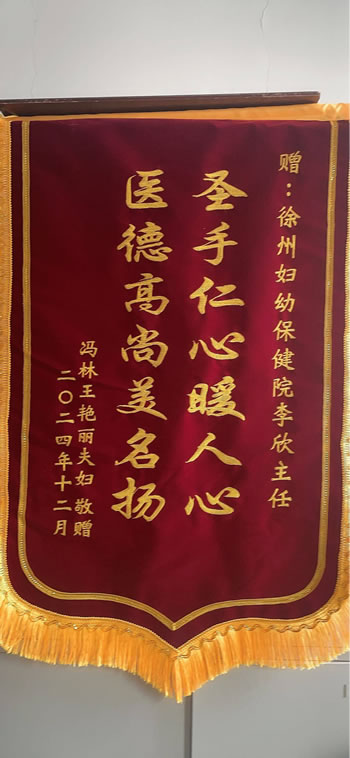 赠：徐州妇幼保健院李欣主任
圣手仁心暖人心
医德高尚美名扬
冯林王艳丽夫妇 敬赠
二〇二四年十二月